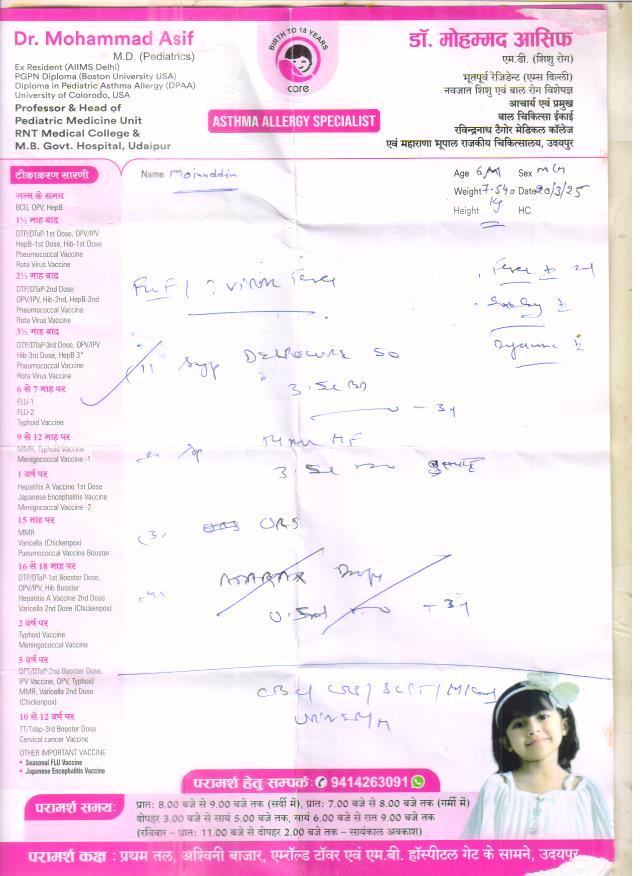 Dr. Mohammad Asif
M.D. (Pediatrics)
Ex Resident (AIIMS Delhi)
PGPN Diploma (Boston University USA)
Diploma in Pediatric Asthma Allergy (DPAA)
University of Colorodo, USA
Professor & Head of
Pediatric Medicine Unit
RNT Medical College &
M.B. Govt. Hospital, Udaipur
BIRTH TO 18 YEARS
care
ASTHMA ALLERGY SPECIALIST
डॉ. मोहम्मद आसिफ
एम.डी. (शिशु रोग)
भूतपूर्व रेजिडेन्ट (एम्स दिल्ली)
नवजात शिशु एवं बाल रोग विशेषज्ञ
आचार्य एवं प्रमुख
बाल चिकित्सा ईकाई
रविन्द्रनाथ टैगोर मेडिकल कॉलेज
एवं महाराणा भूपाल राजकीय चिकित्सालय, उदयपुर
Name Moinuddin
Age 6 M Sex MCH
Weight 7.540 Date 20/3/25
Height Kg HC
टीकाकरण सारणी
जन्म के समय
BCG, OPV, HepB
1½ माह बाद
DTP/DTaP-1st Dose, OPV/IPV
HepB-1st Dose, Hib-1st Dose
Pneumococcal Vaccine
Rota Virus Vaccine
2½ माह बाद
DTP/DTaP-2nd Dose
OPV/IPV, Hib-2nd, HepB-2nd
Pneumococcal Vaccine
Rota Virus Vaccine
3½ माह बाद
DTP/DTaP-3rd Dose, OPV/IPV
Hib-3rd Dose, HepB 3*
Pneumococcal Vaccine
Rota Virus Vaccine
6 से 7 माह पर
FLU-1
FLU-2
Typhoid Vaccine
9 से 12 माह पर
MMR, Typhoid Vaccine
Menigococcal Vaccine -1
1 वर्ष पर
Hepatitis A Vaccine 1st Dose
Japanese Encephalitis Vaccine
Menigococcal Vaccine -2
15 माह पर
MMR
Varicella (Chickenpox)
Pueumococcal Vaccine Booster
16 से 18 माह पर
DTP/DTaP-1st Booster Dose,
OPV/IPV, Hib Booster
Hepatitis A Vaccine 2nd Dose
Varicella 2nd Dose (Chickenpox)
2 वर्ष पर
Typhoid Vaccine
Meningococcal Vaccine
5 वर्ष पर
DPT/DTaP 2nd Booster Dose,
IPV Vaccine, OPV, Typhoid
MMR, Varicella 2nd Dose
(Chickenpox)
10 से 12 वर्ष पर
TT/Tdap-3rd Booster Dose
Cervical cancer Vaccine
OTHER IMPORTANT VACCINE
• Seasonal FLU Vaccine
• Japanese Encephalitis Vaccine
FUF / ? Viral Fever
Fever
Syp 50
3.5
MF
3.5
ORS
ATARAX Drops
परामर्श हेतु सम्पर्क: 9414263091
परामर्श समय:
प्रात: 8.00 बजे से 9.00 बजे तक (सर्दी में), प्रात: 7.00 बजे से 8.00 बजे तक (गर्मी में)
दोपहर 3.00 बजे से सायं 5.00 बजे तक, सायं 6.00 बजे से रात 9.00 बजे तक
(रविवार – प्रात: 11.00 बजे से दोपहर 2.00 बजे तक – सायंकाल अवकाश)
परामर्श कक्ष : प्रथम तल, अश्विनी बाजार, एमरॉल्ड टॉवर एवं एम.बी. हॉस्पीटल गेट के सामने, उदयपुर